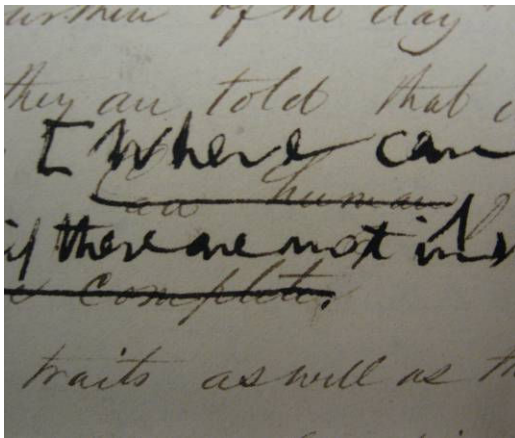 of the day
they are told that
[ Where can
an human
if there are not in
complete.
traits as well as th